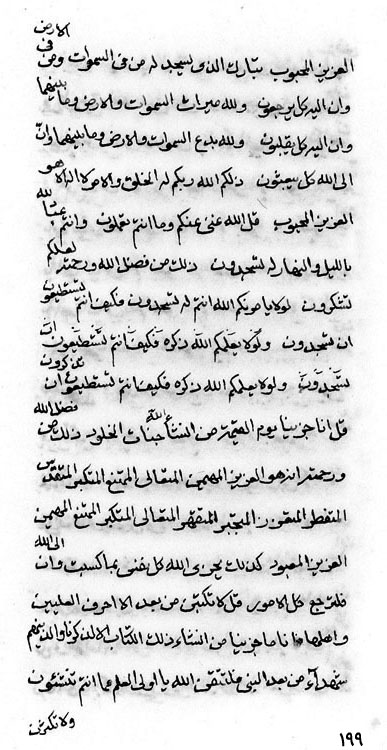 الارض
العزيز المحبوب تبارك الذى يسجد له من فى السموات ومن فى
وان اليه كل يرجعون ولله ميراث السموات والارض وما بينهما
وان اليه كل يقلبون ولله بدع السموات والارض وما بينهما وان
الى الله كل يبعثون ذلكم الله ربكم له الخلق والامر لا اله الا هو
العزيز المحبوب قل الله غنى عنكم وما انتم تعملون وانتم لله
بالليل والنهار له لتسجدون ذلك من فضل الله ورحمته لعلكم
تشكرون لولا يامرنكم الله انتم له لتسجدون فكيف انتم تستطيعون
ان تسجدون ولولا يعلمكم الله ذكره فكيف انتم تستطيعون ان
تسجدون ولولا يعلمكم الله ذكره فكيف انتم تستطيعون ان تذكرون
قل انا جزينا يوم القيمة من انشأ لله جنات الخلود ذلك من فضل الله
ورحمته انه هو العزيز المهيمن المتعالى الممتنع المتكبر المتقدس
المتجبر المتقهر المتعالى المتكبر الممتنع المهيمن
العزيز المعبود كذلك يجزى الله كل نفس بما كسبت وان الى الله
فلترجع كل الامور قل لا تكتبن من بعد الا احرف العليين
ما جزينا من انشاء ذلك الكتاب الا
شهداء من بعد فلتتقن الله يا اولى العلم عما انتم تنشئون
ولا تكتبن
١٩٩